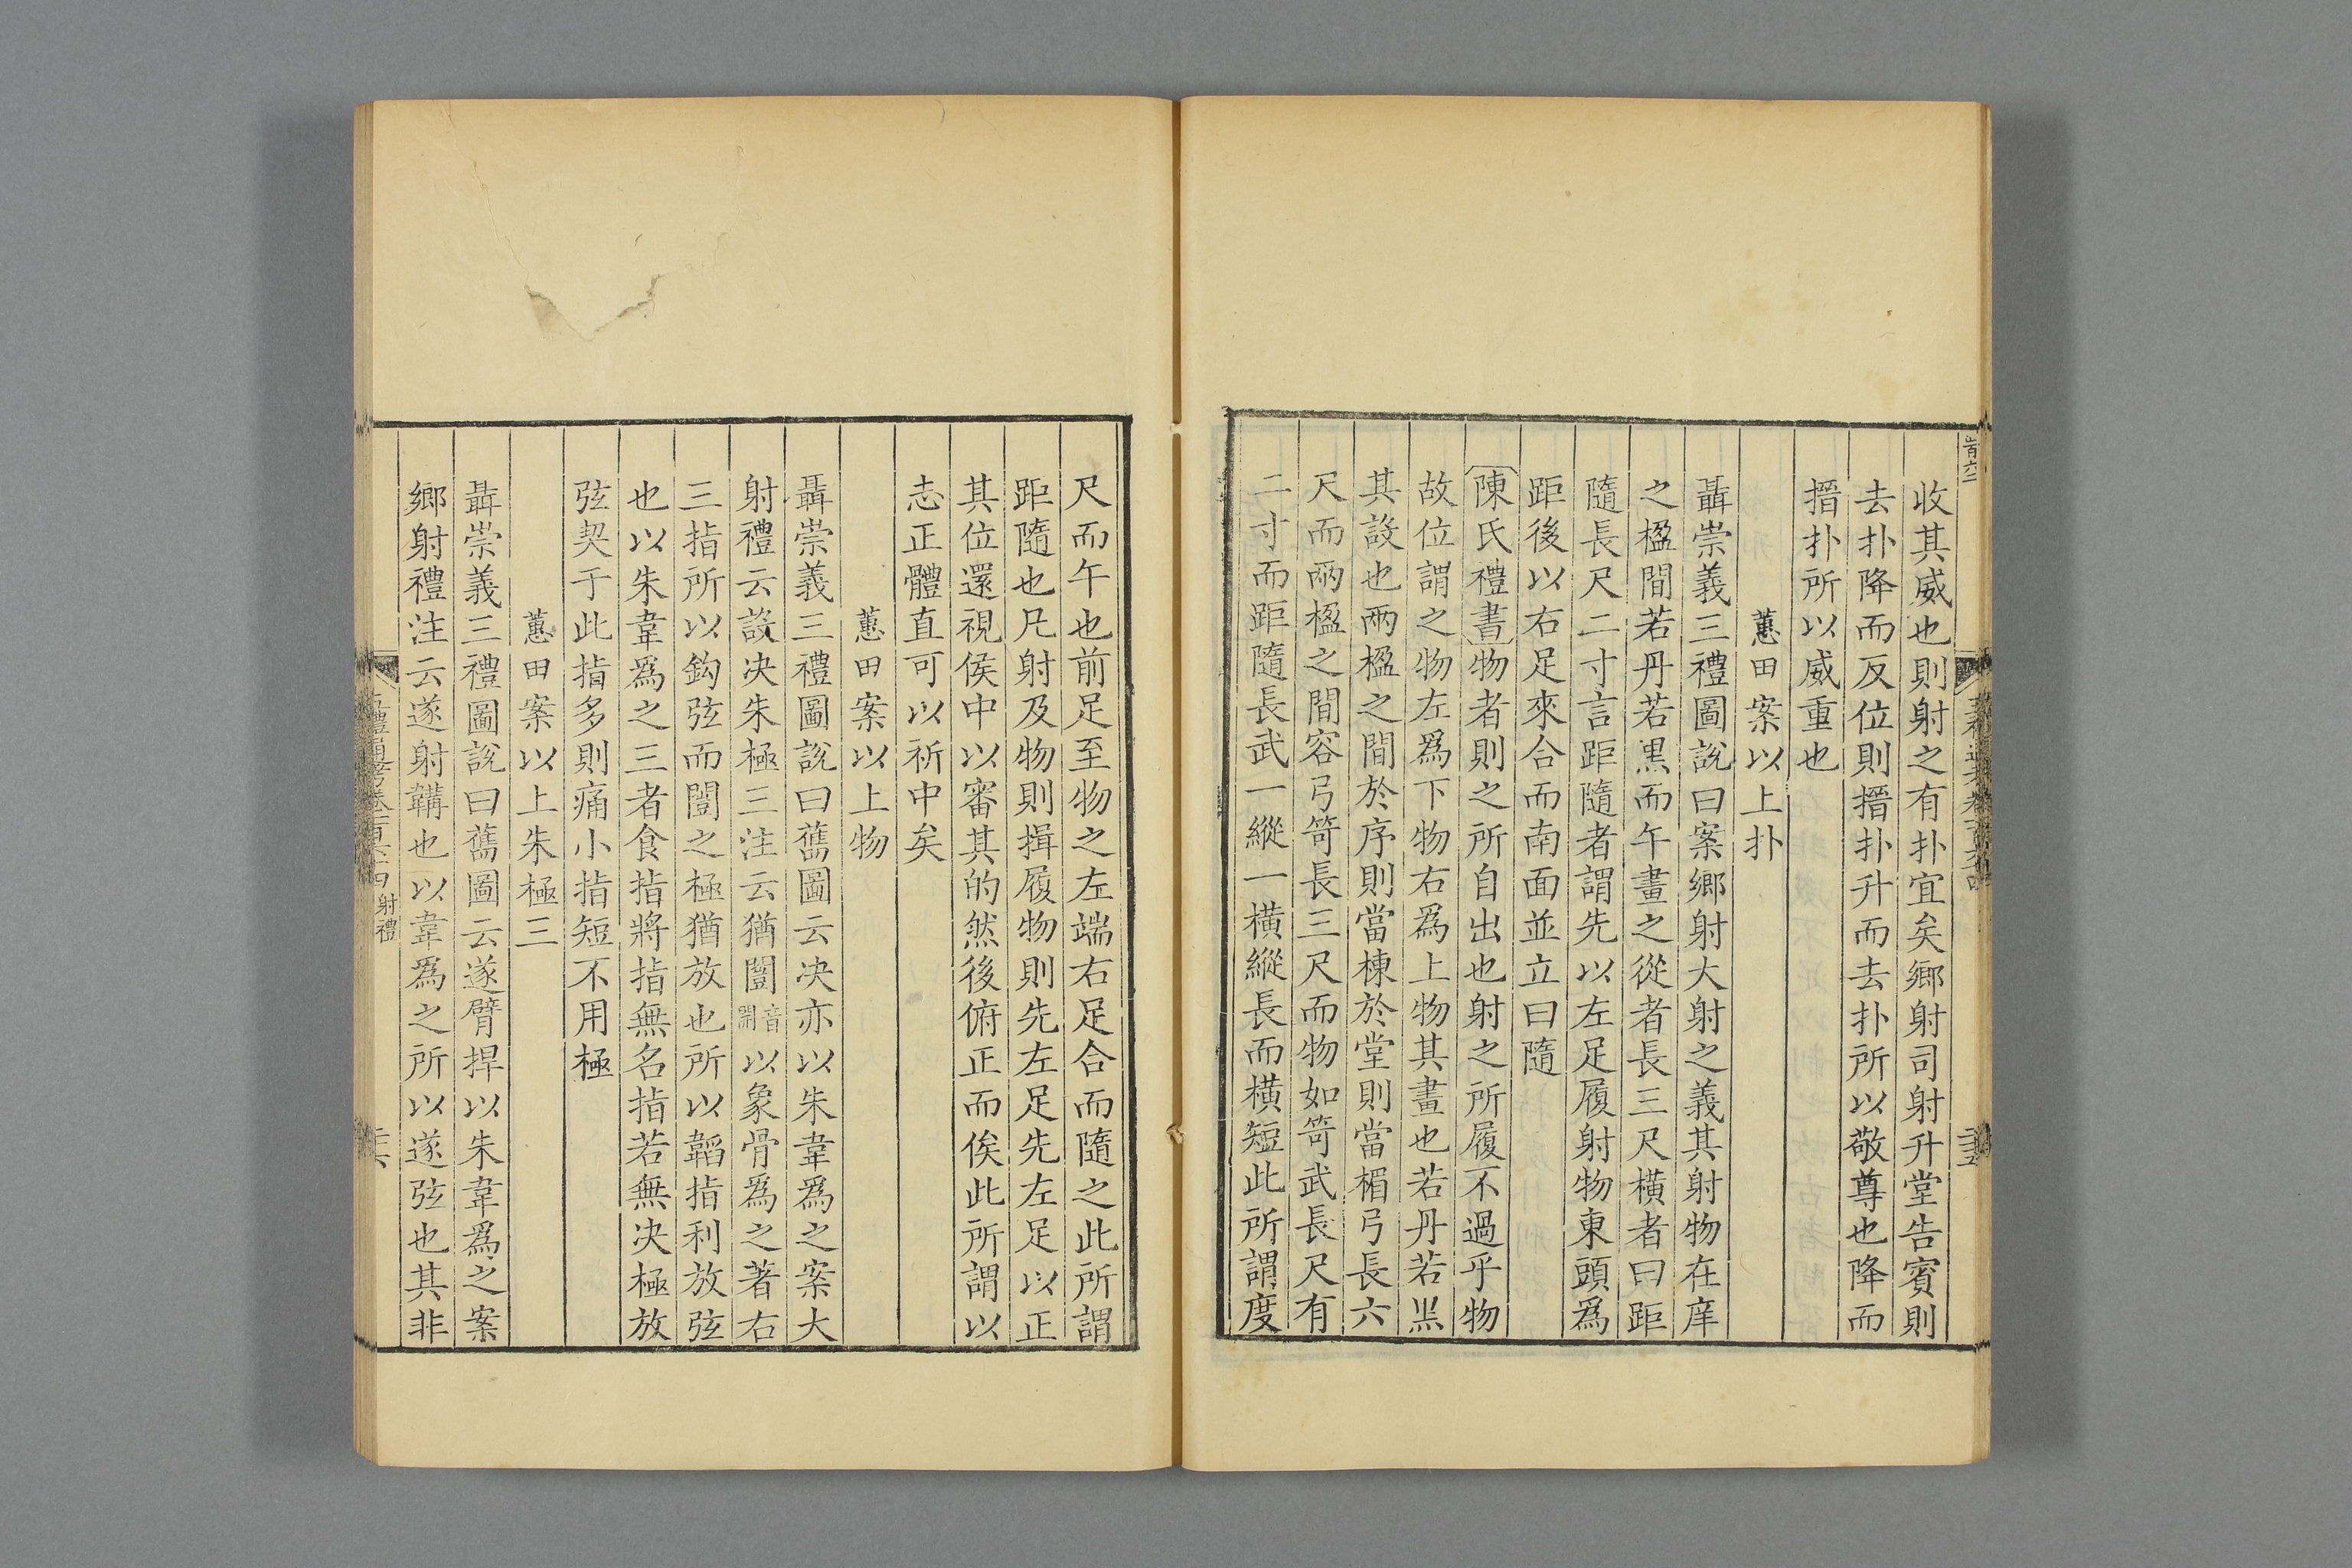 收其威也則射之有扑宜矣鄉射司射升堂告賓則
去扑降而反位則搢扑升而去扑所以敬尊也降而
搢扑所以威重也
蕙田案以上扑
聶崇義三禮圖說曰案鄉射大射之義其射物在庠
之楹間若丹若黑而午畫之從者長三尺橫者曰距
隨長尺二寸言距隨者謂先以左足履射物東頭爲
距後以右足來合而南面並立曰隨
陳氏禮書物者則之所自出也射之所履不過乎物
故位謂之物左爲下物右爲上物其畫也若丹若黑
其設也兩楹之間於序則當棟於堂則當楣弓長六
尺而兩楹之間容弓笴長三尺而物如笴武長尺有
二寸而距隨長武一縱一橫縱長而橫短此所謂度
尺而午也前足至物之左端右足合而隨之此所謂
距隨也凡射及物則揖履物則先左足先左足以正
其位還視侯中以審其的然後俯正而俟此所謂以
志正體直可以祈中矣
蕙田案以上物
聶崇義三禮圖說曰舊圖云决亦以朱韋爲之案大
射禮云設决朱極三注云猶闓音開以象骨爲之著右
三指所以鈎弦而闓之極猶放也所以韜指利放弦
也以朱韋爲之三者食指將指無名指若無决極放
弦契于此指多則痛小指短不用極
蕙田案以上朱極三
聶崇義三禮圖說曰舊圖云遂臂捍以朱韋爲之案
鄉射禮注云遂射韝也以韋爲之所以遂弦也其非
射禮